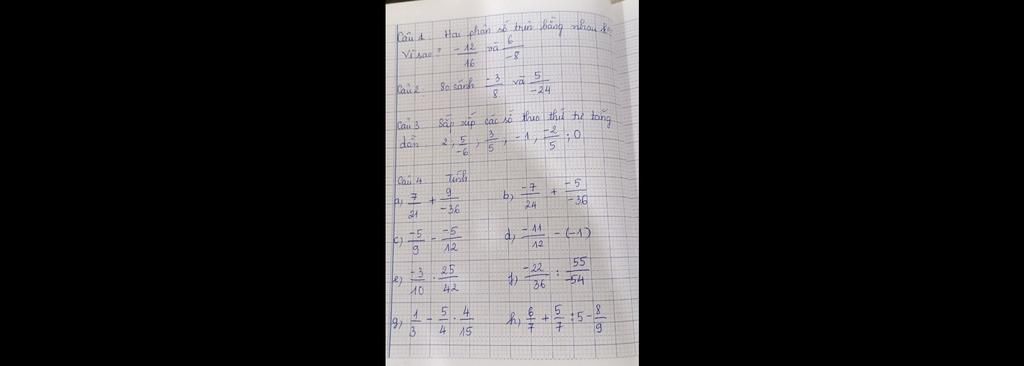 Câu 1. Hai phân số trên bằng nhau k
Vì sao? -12/16 và 6/-8
Câu 2. So sánh -3/8 và 5/-24
Câu 3. Sắp xếp các số theo thứ tự tăng
dần. 2; 5/-6; 3/5; -1; -2/5; 0
Câu 4. Tính
a, 7/21 + 9/-36 b, -7/24 + -5/-36
c, -5/9 - -5/12 d, -11/12 - (-1)
e, -3/10 . 25/42 f, -22/36 : 55/-54
g, 1/3 - 5/4 . 4/15 h, 6/7 + 5/7 : 5 - 8/9